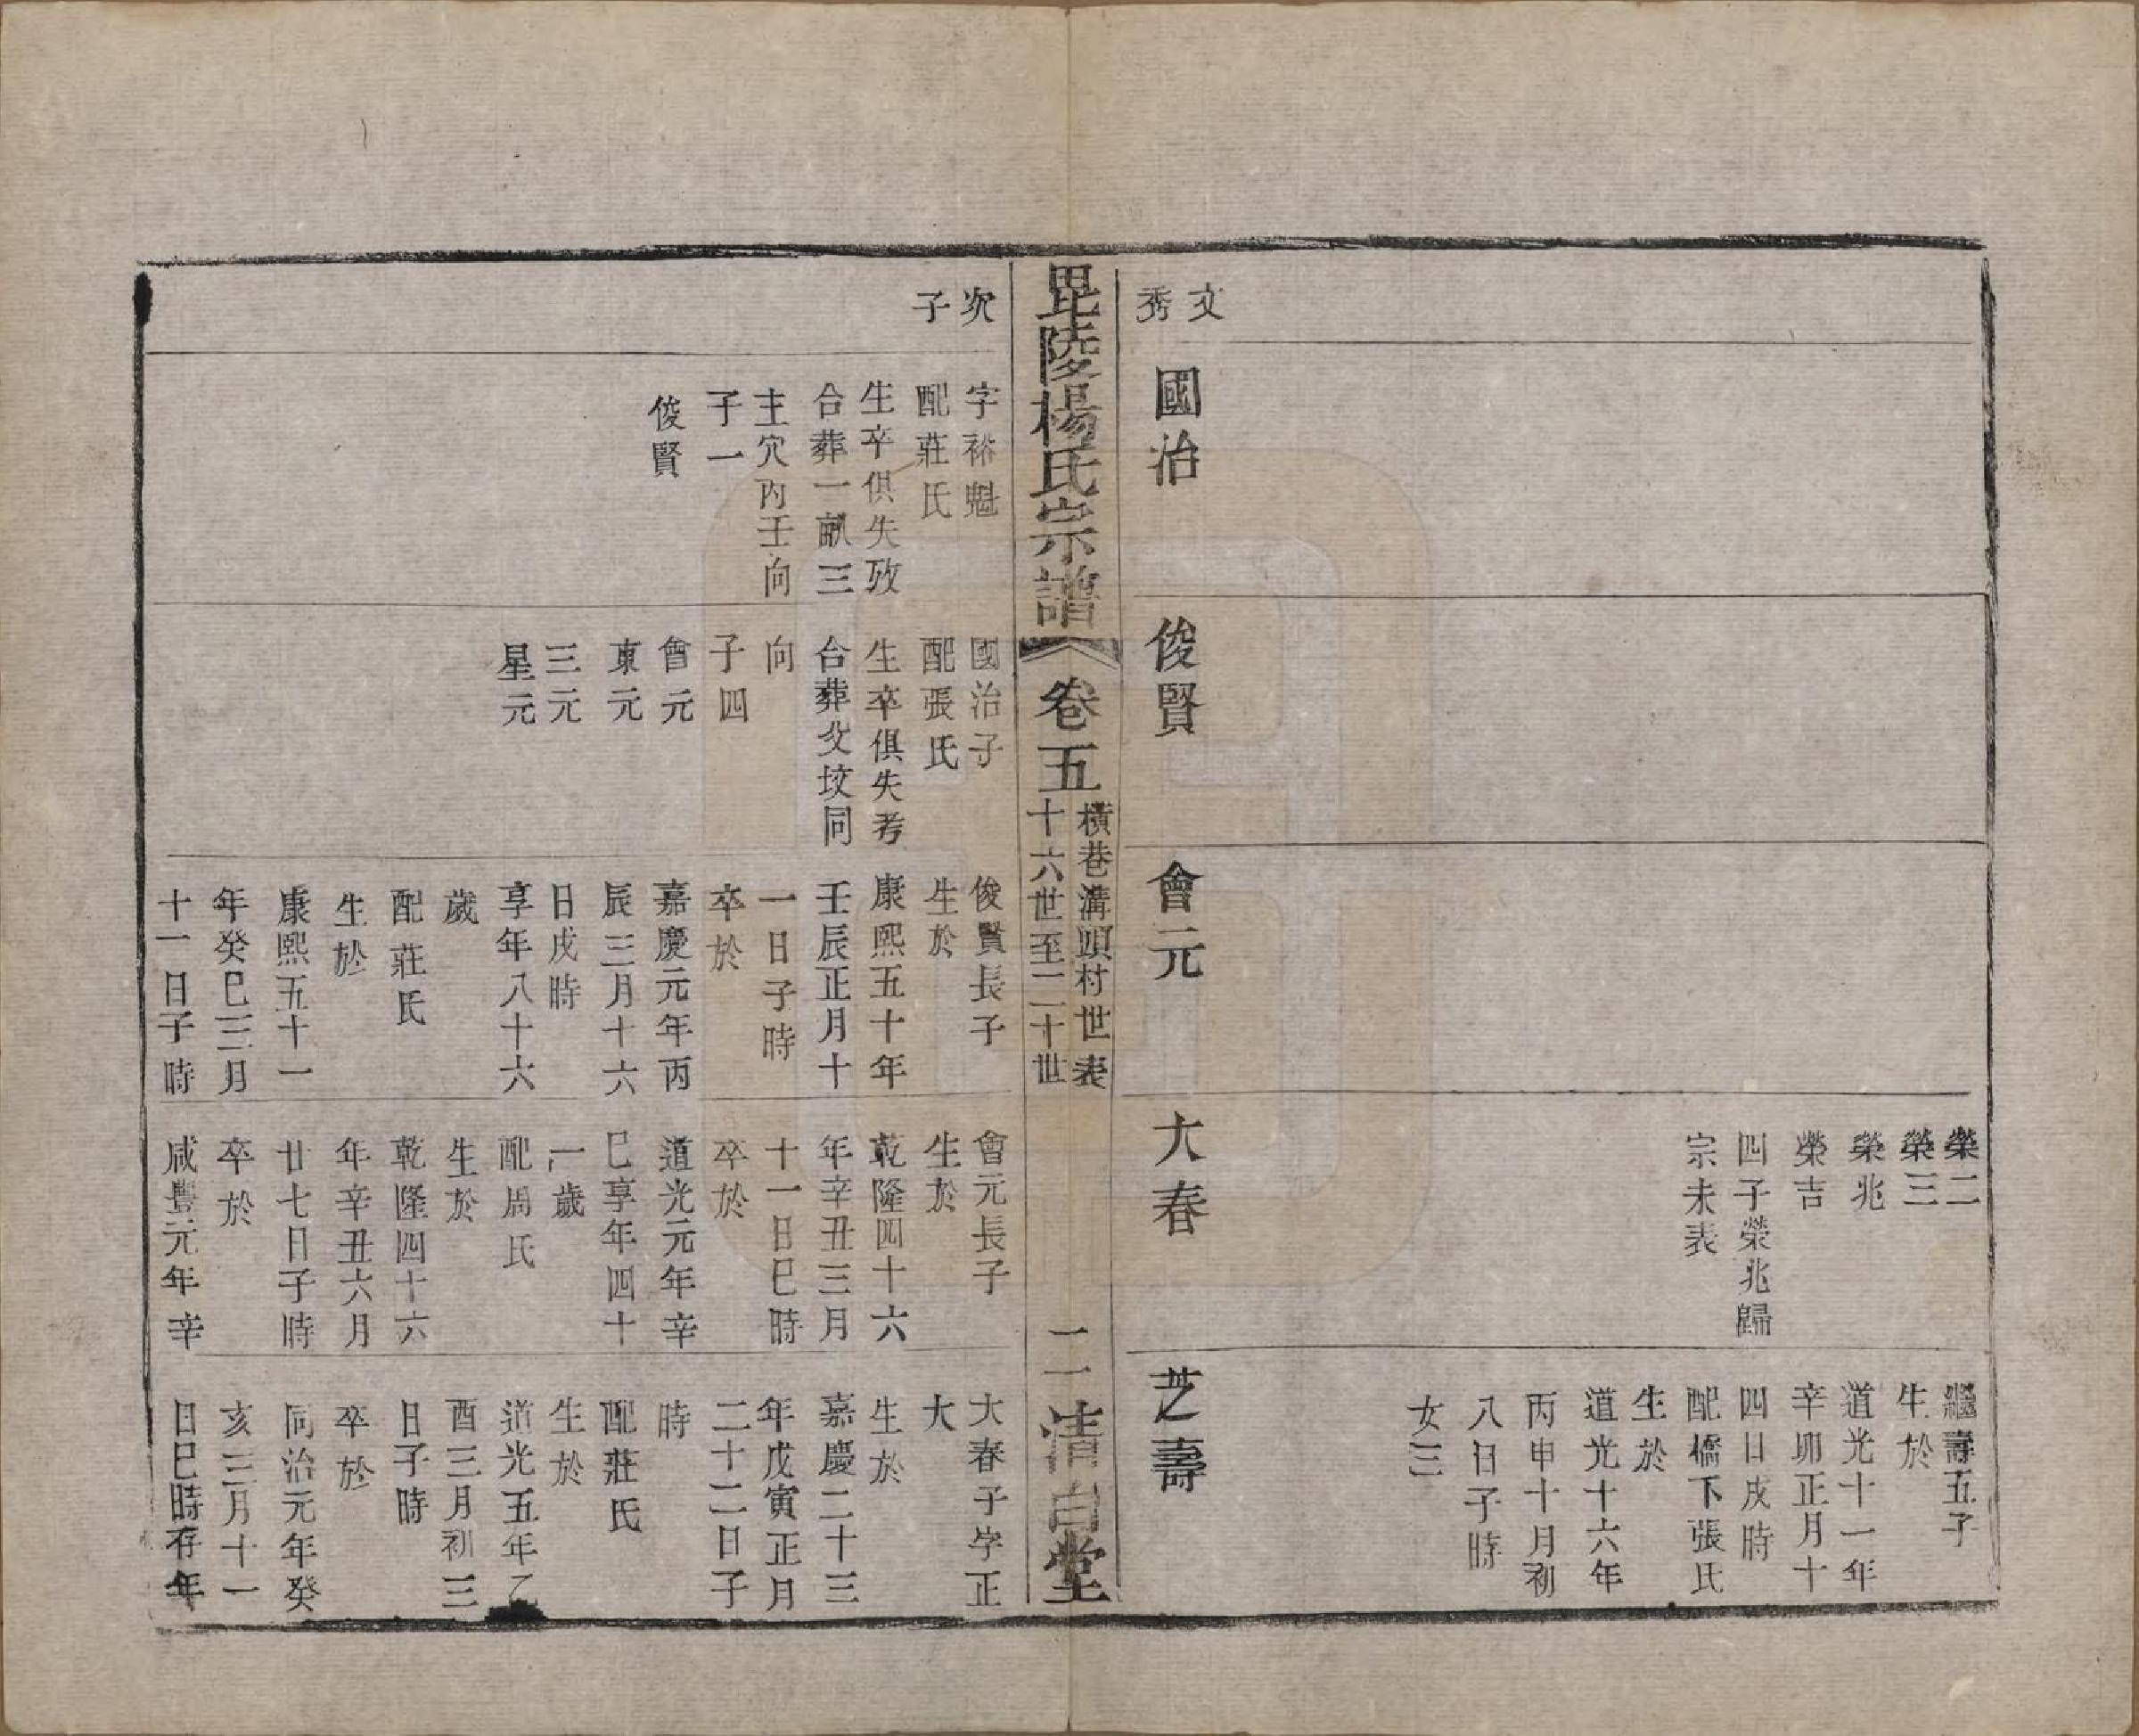 榮二
榮三
榮兆
榮吉
四子榮兆歸
宗未表
繼壽五子
生於
道光十一年
辛卯正月十
四日戌時
配橋下張氏
生於
道光十六年
丙申十月初
八日子時
女三
文秀
國治
俊賢
會元
大春
芝壽
毘陵楊氏宗譜
卷五
橫巷溝頭村世表
十六世至二十世
二
清白堂
次子
字裕魁
配莊氏
生卒俱失攷
合葬一畝三
主穴丙壬向
子一
俊賢
國治子
配張氏
生卒俱失考
合葬父坟同
向
子四
會元
東元
三元
星元
俊賢長子
生於
康熙五十年
壬辰正月十
一日子時
卒於
嘉慶元年丙
辰三月十六
日戌時
享年八十六
歲
配莊氏
生於
康熙五十一
年癸巳三月
十一日子時
會元長子
生於
乾隆四十六
年辛丑三月
十一日巳時
卒於
道光元年辛
巳享年四十
一歲
配周氏
生於
乾隆四十六
年辛丑六月
廿七日子時
卒於
咸豐元年辛
大春子字正
大
生於
嘉慶二十三
年戊寅正月
二十二日子
時
配莊氏
生於
道光五年乙
酉三月初三
日子時
卒於
同治元年癸
亥三月十一
日巳時存年